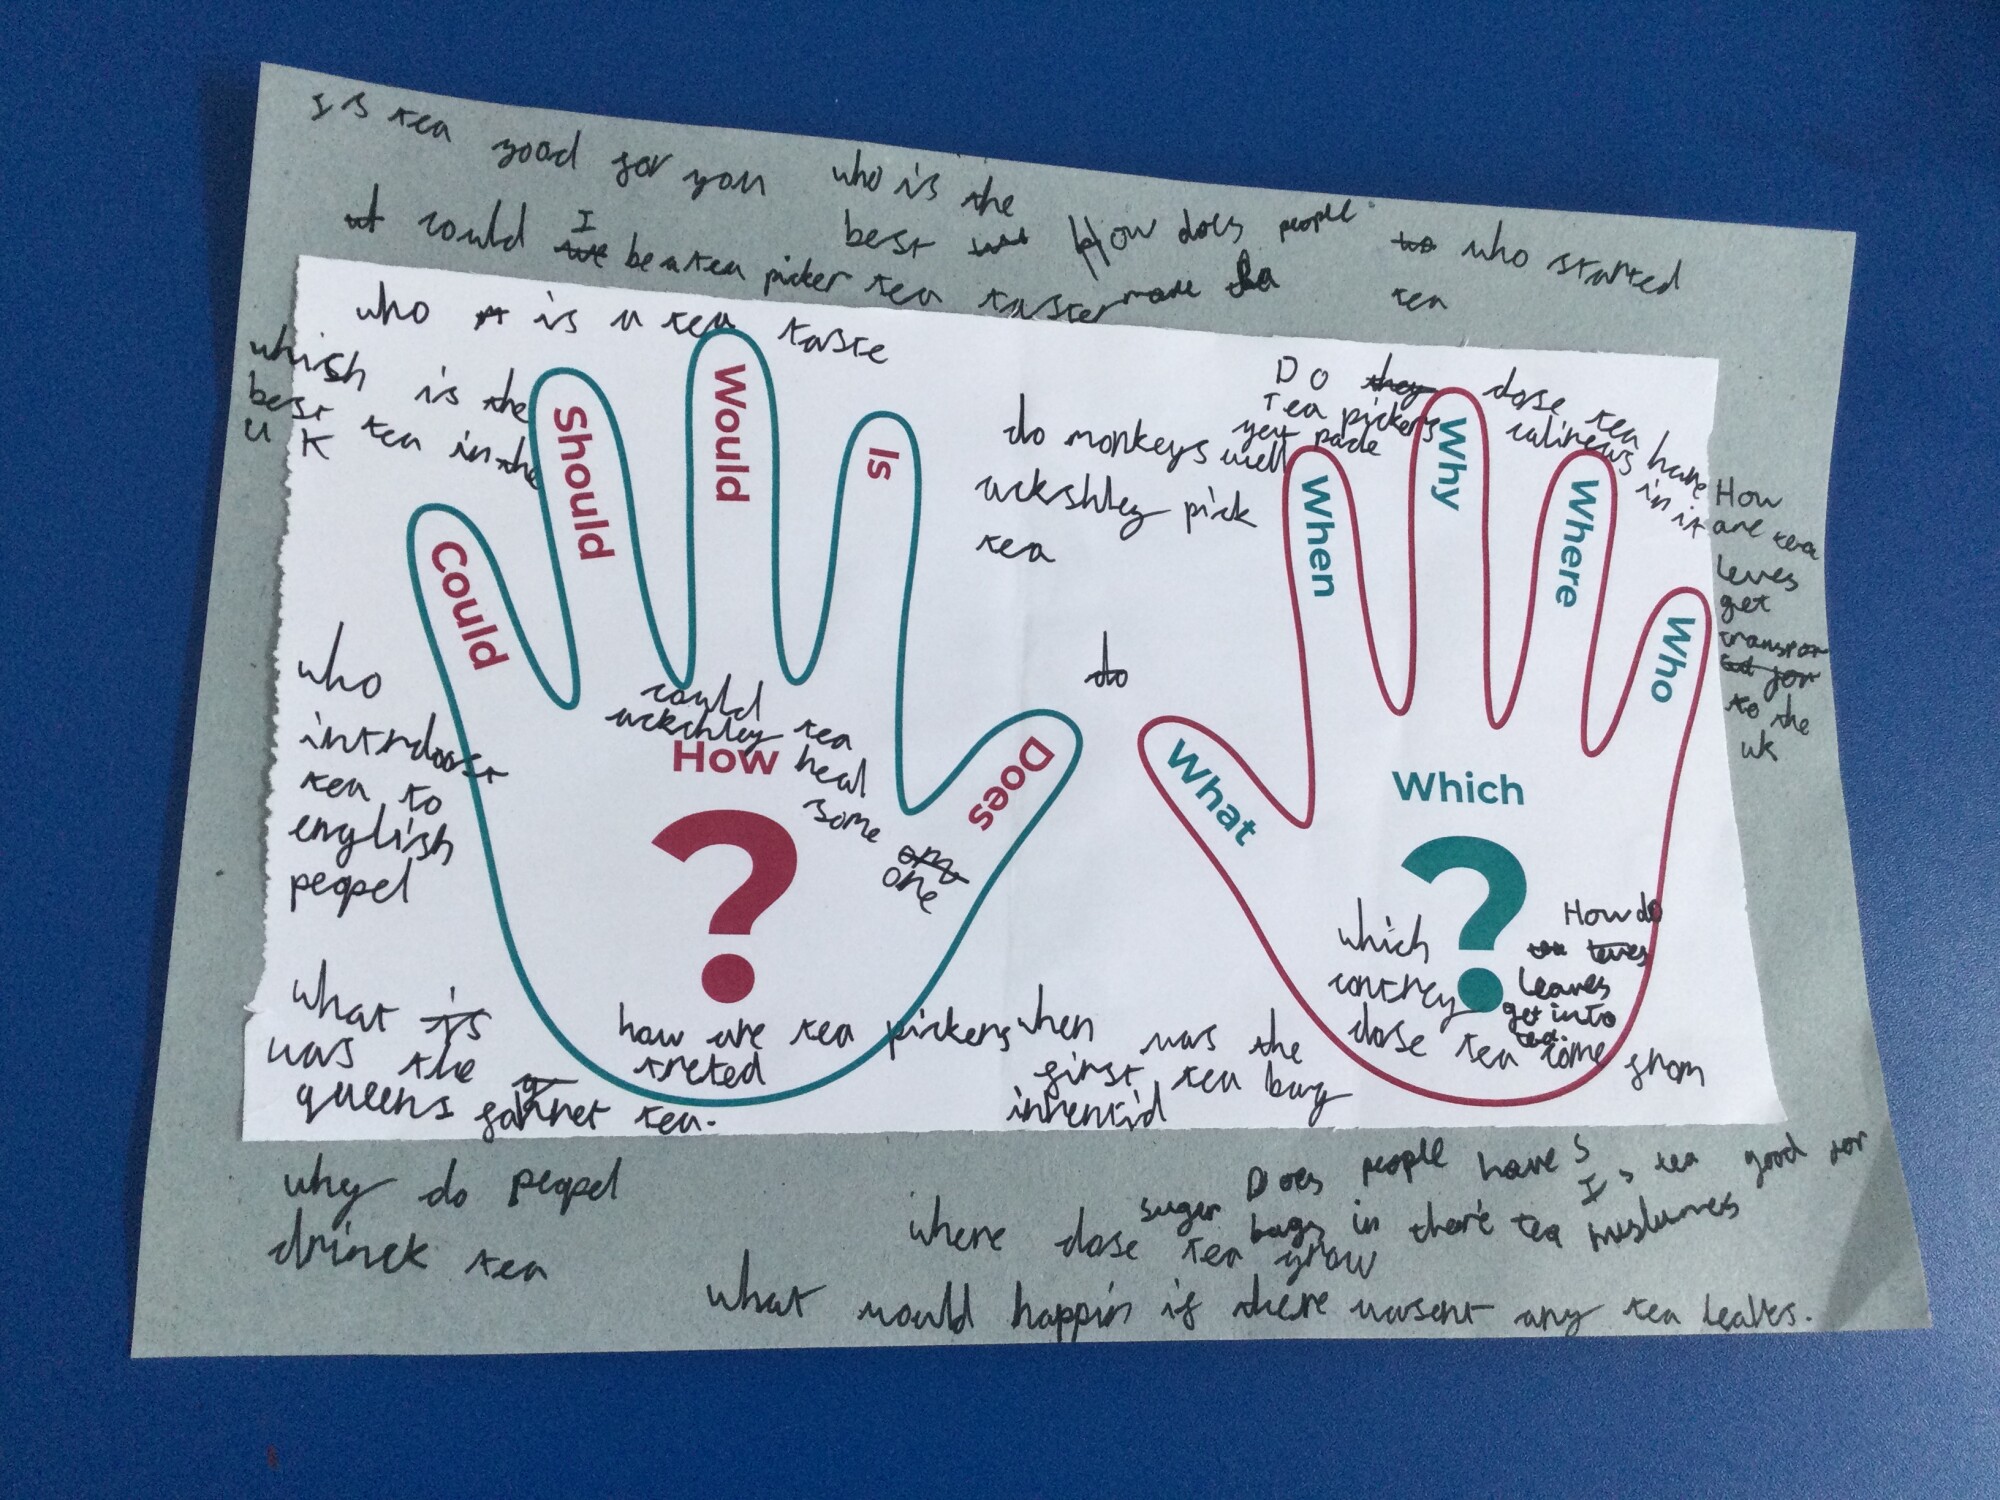 Is tea good for you
who is the
best
tea taster
could I be a tea picker
How does people
make tea
who started
tea
who is a tea taste
whish is the
best tea in the
U K
Could
Should
Would
Is
Does
How
?
could
uckshley tea
heal
some
one
who
intrdoost
tea to
english
peopel
what is
was the
queens favret tea.
how are tea pickers
treted
do monkeys well
uckshley pick
tea
do
Do they
Tea pickers
get paide
dose tea
have
in it
When
Why
Where
Who
What
Which
?
How
are tea
leves
get
transpor
ted for
to the
uk
which
contrey
dose tea come from
How do
tea leves
leaves
get into
tea.
when was the
first tea bag
intentid
why do peopel
drinck tea
where dose tea grow
Does people have
suger bags in there tea
Is tea good for
what would happin if there wasent any tea leaves.